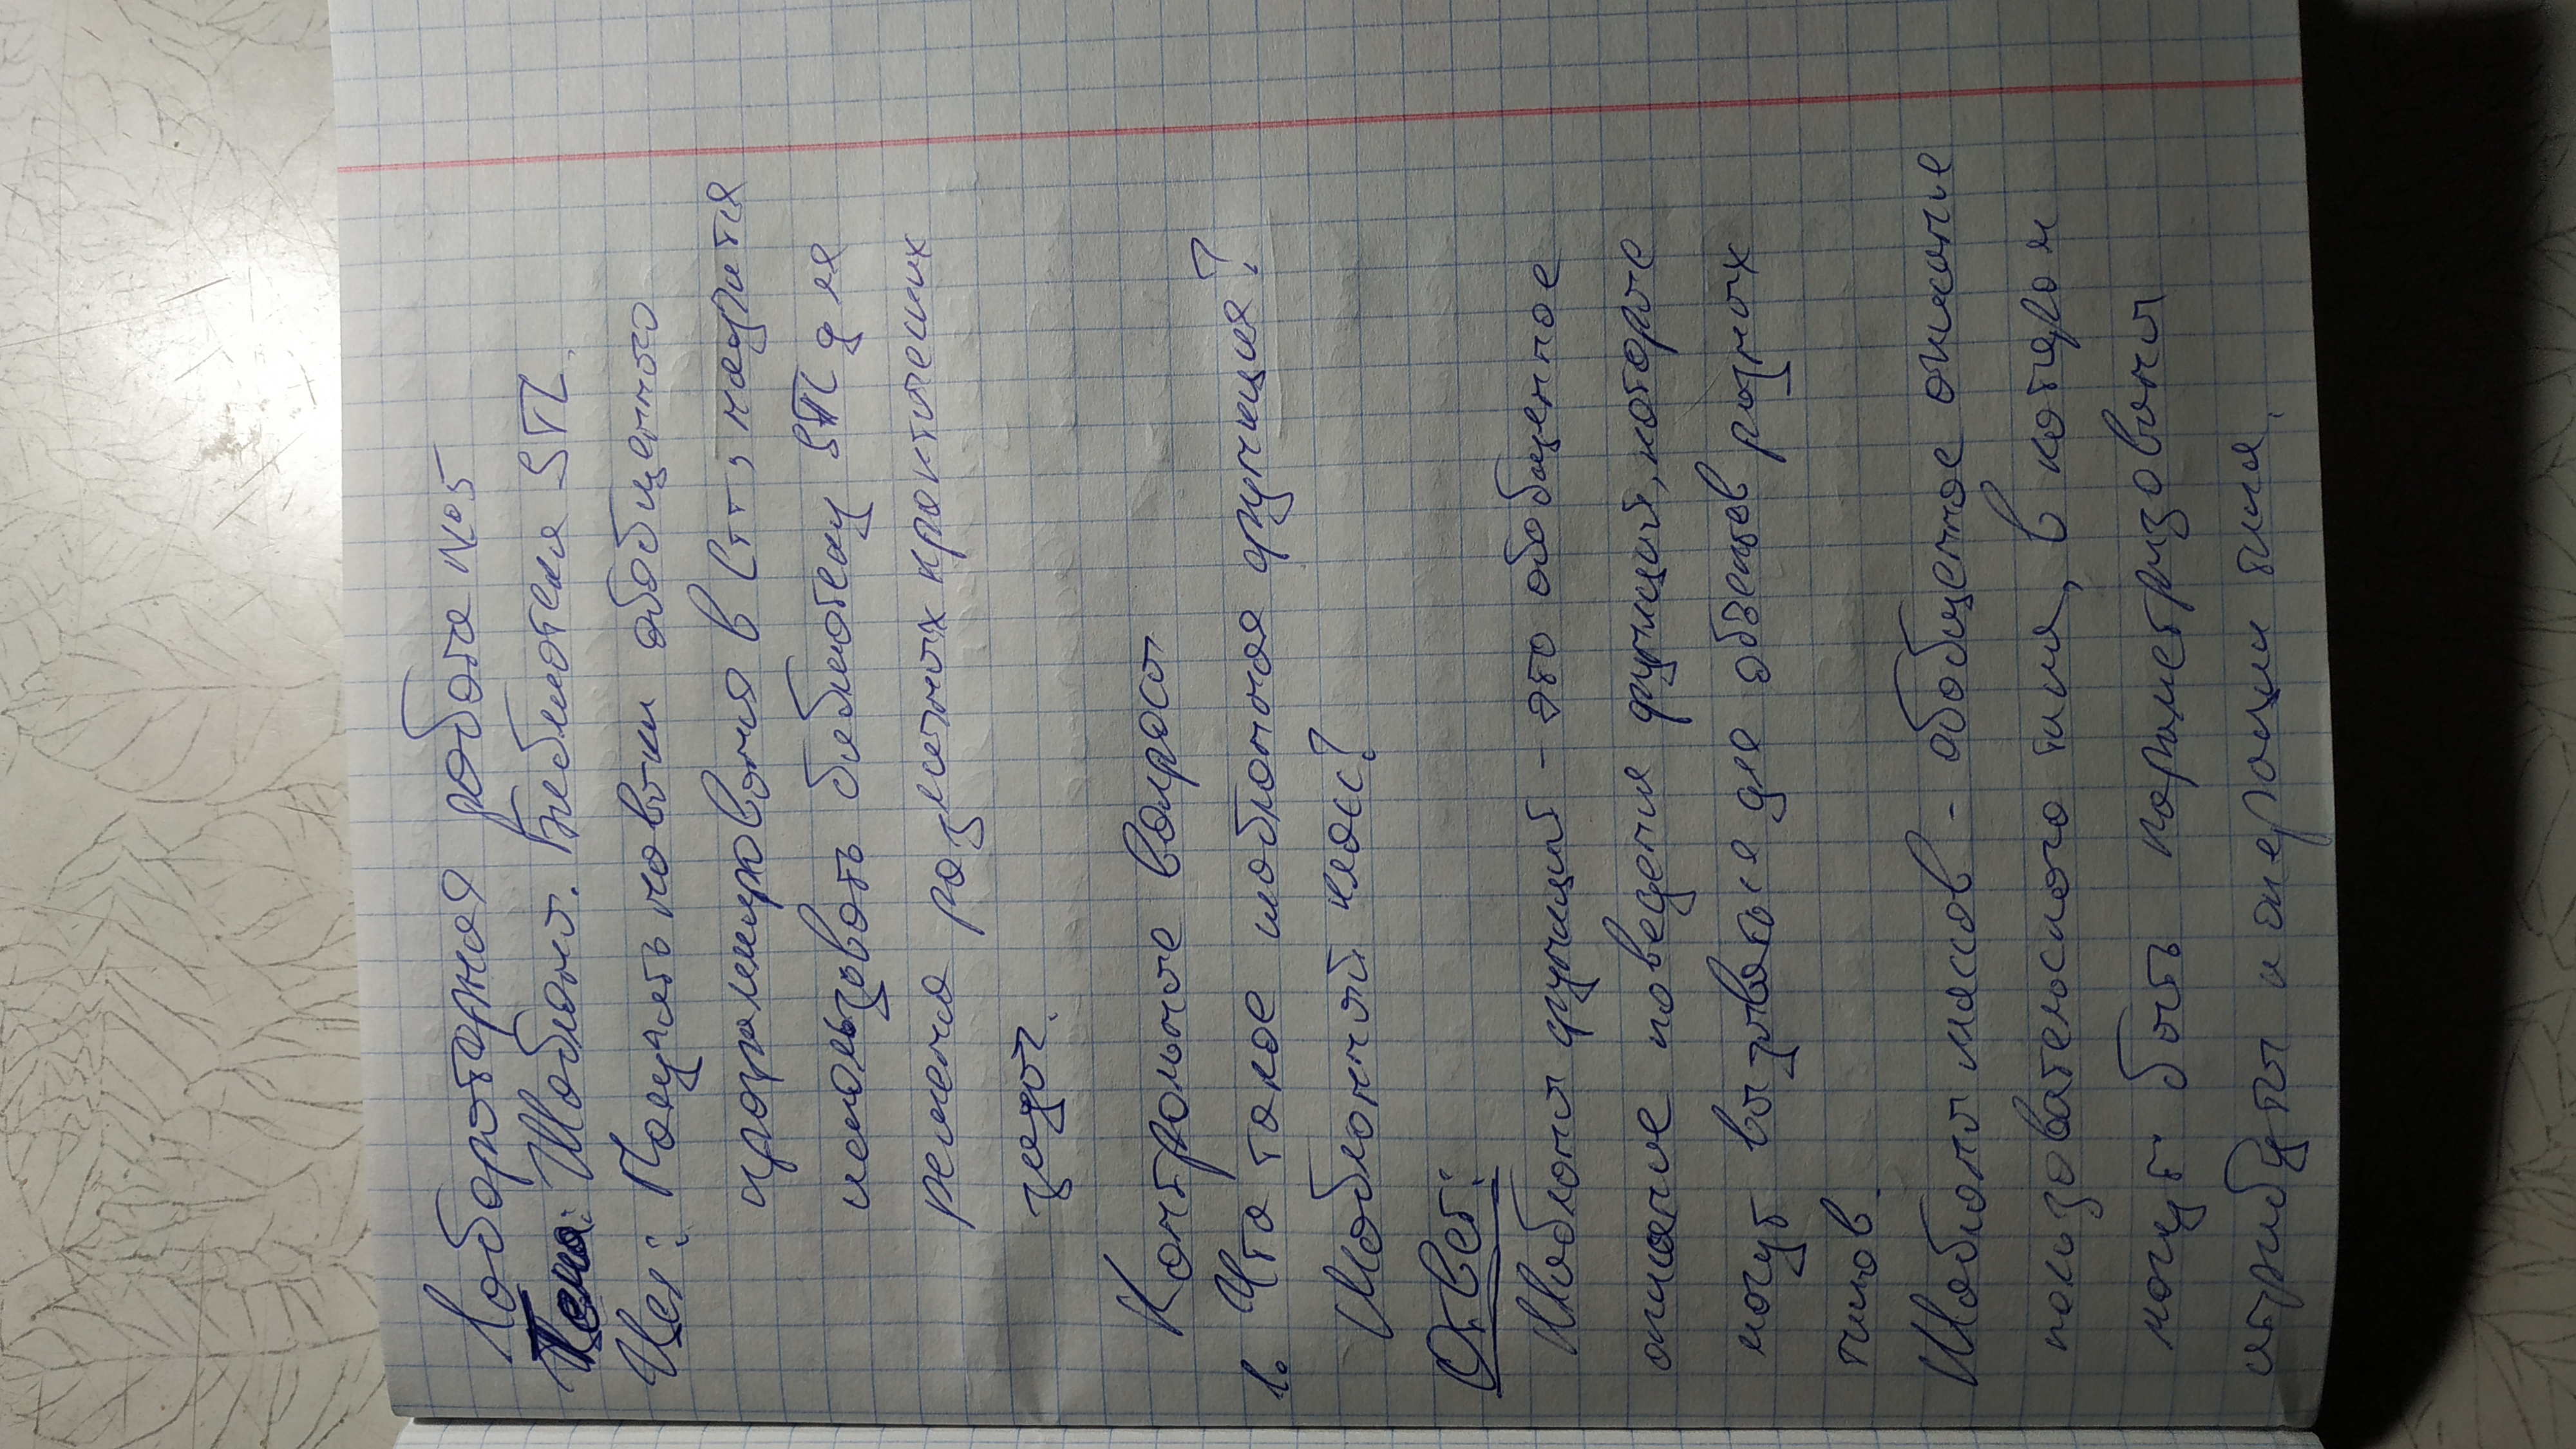 Лабораторная работа №5
Тема: Шаблоны. Библиотека STL.
Цел: Получить навыки обобщенного
программирования в С++, научится
использовать библиотеку STL для
решения различных практических
задач.
Контрольные вопросы
1. Что такое шаблонная функция?
Шаблонный класс?
Ответ:
Шаблоны функций - это обобщенное
описание поведения функций, которые
могут вызываться для объектов разных
типов.
Шаблоны классов - обобщенное описание
пользовательского типа, в котором
могут быть параметризованы
атрибуты и операции типа.